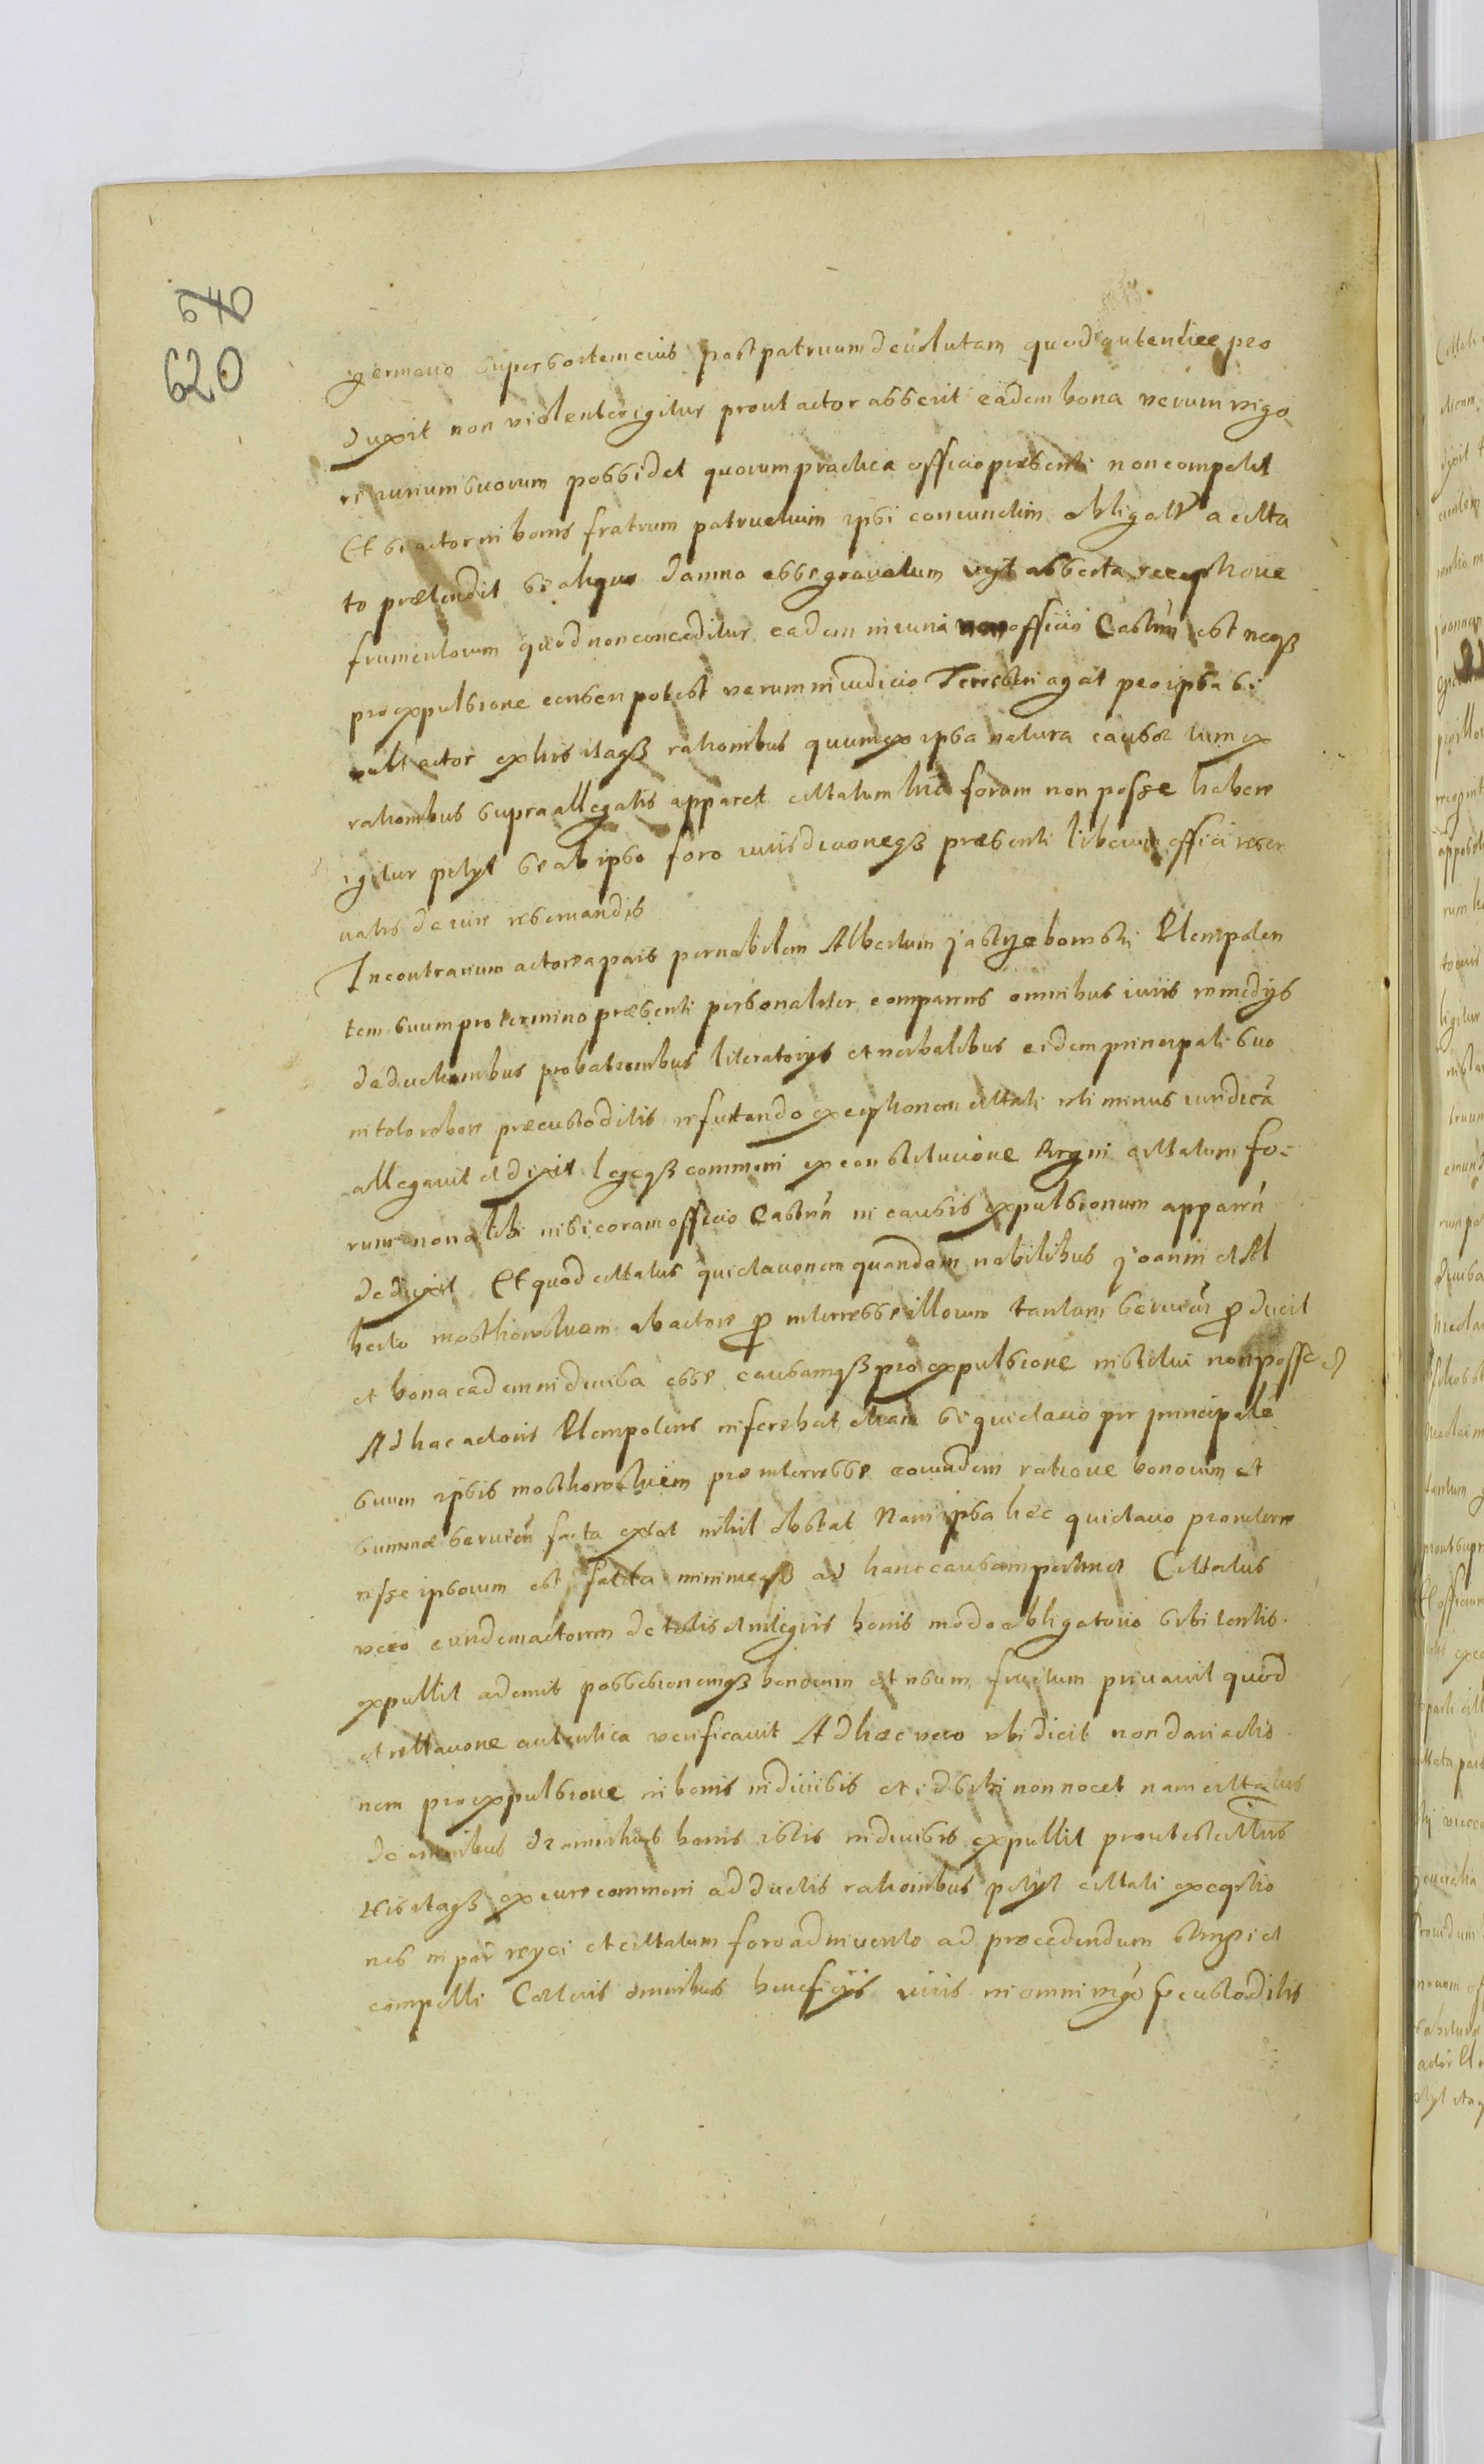 620
germano super sortem eius post patruum deuolutam quod autentice pro
duxit non violenter igitur prout actor asserit eadem bona verum vigo
re iurium suorum possidet quorum practica officio praesenti non competit
Et si actor in bonis fratrum patruelium ipsi coniunctim obligatis a citta
to praetendit se aliquo damno esse gravatum vigt asserta receptione
frumentorum quod non conceditur eadem iniuria non officii Castrn est neqз
pro expulsione censeri potest verum in iudicio Terrestri agat pro ipsa si
vult actor ex his itaqз rationibus quum ex ipsa natura causae tum ex
rationibus supra allegatis apparet cittatum hic forum non posse habere
igitur petyt se ab ipso foro iurisdicioneqз praesenti liberum effici reser
vatis de iure reservandis
In contrarium actorea pars per nobilem Albertum jastrzebowski Plenipoten
tem suum pro termino praesenti personaliter comparens omnibus iuris remedys
deductionibus probationibus literatorys et verbalibus eidem principali suo
in toto robore praecustoditis refutando exceptionem cittati uti minus iuridica
allegavit et dixit legeqз communi ex constitucione Regni cittatum fo=
rum non alibi nisi coram officio Castrn in causis expulsionum apparn
deduxit Et quod cittatus quietacionem quandam nobilibus joanni et Al
berto mosthowskiem ab actore p interresse illorum tantum servien p ducit
et bona eadem indivisa esse causamqз pro expulsione institui non posse
Ad haec actoris Plenipotens inferebat etiam si quietacio per principale
suum ipsis mosthowskiem pro interresse eorundem ratione bonorum et
summae servien facta extat nihil obstat Nam ipsa hec quietacio pro interre
resse ipsorum est facta minimeqз ad hanc causam pertinet Cittatus
vero eundem actorem de totis et integris bonis modo obligatorio sibi tentis
expullit ademit possessionemqз bonorum et usum fructum privavit quod
et rellacione autentica verificavit Ad haec vero ubi dicit non dari actio
nem pro expulsione in bonis indivisis et id sibi non nocet nam cittatus
de omnibus bonis istis indivisis expullit prout est cittatus
His itaqз ex iure communi adductis rationibus petyt cittati exceptio
nes in par reyci et cittatum foro adinvento ad procedendum stringi et
compelli Caeteris omnibus beneficys iuris in omni praecustoditis